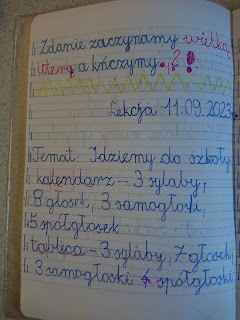 Zdanie zaczynamy wielką
literą a kńczymy . ? !
Lekcja 11.09.2023r.
Temat: Idziemy do szkoły
kalendarz – 3 sylaby,
8 głosek, 3 samogłoski,
5 spółgłosek
tablica – 3 sylaby, 7 głosek,
3 samogłoski 4 spółgłoski